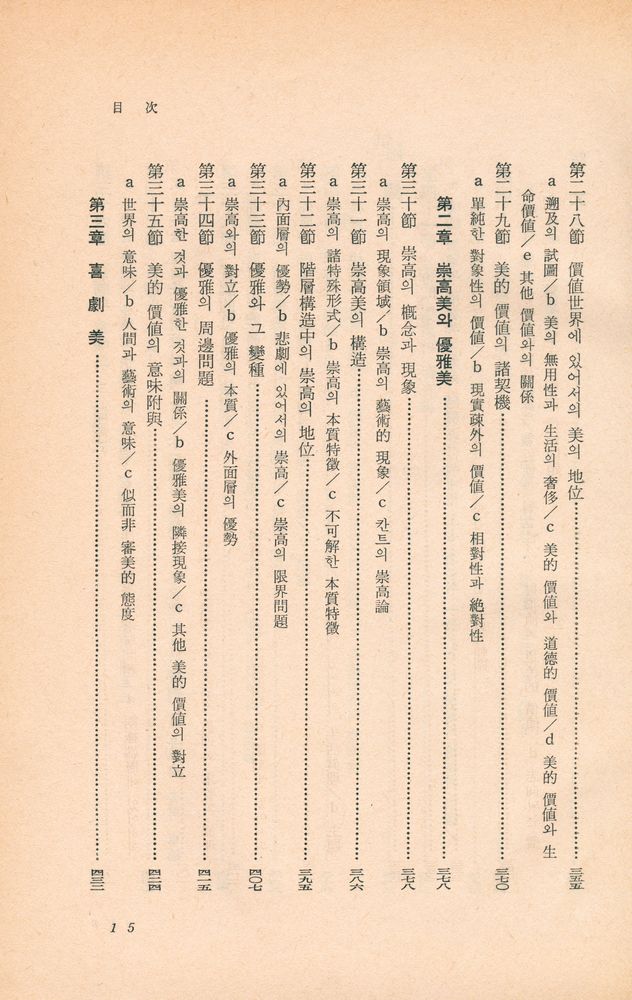 目次
第二十八節 價値世界에 있어서의 美의 地位……三五五
a 遡及의 試圖／b 美의 無用性과 生活의 奢侈／c 美的 價値와 道德的 價値／d 美的 價値와 生
命價値／e 其他 價値와의 關係
第二十九節 美的 價値의 諸契機……三七〇
a 單純한 對象性의 價値／b 現實疎外의 價値／c 相對性과 絶對性
第二章 崇高美와 優雅美……三七八
第三十節 崇高의 槪念과 現象……三七八
a 崇高의 現象領域／b 崇高의 藝術的 現象／c 칸트의 崇高論
第三十一節 崇高美의 構造……三八六
a 崇高의 諸特殊形式／b 崇高의 本質特徵／c 不可解한 本質特徵
第三十二節 階層構造中의 崇高의 地位……三九五
a 內面層의 優勢／b 悲劇에 있어서의 崇高／c 崇高의 限界問題
第三十三節 優雅와 그 變種……四〇七
a 崇高와의 對立／b 優雅의 本質／c 外面層의 優勢
第三十四節 優雅의 周邊問題……四一五
a 崇高한 것과 優雅한 것과의 關係／b 優雅美의 隣接現象／c 其他 美的 價値의 對立
第三十五節 美的 價値의 意味附與……四二四
a 世界의 意味／b 人間과 藝術의 意味／c 似而非 審美的 態度
第三章 喜劇美……四三三
15